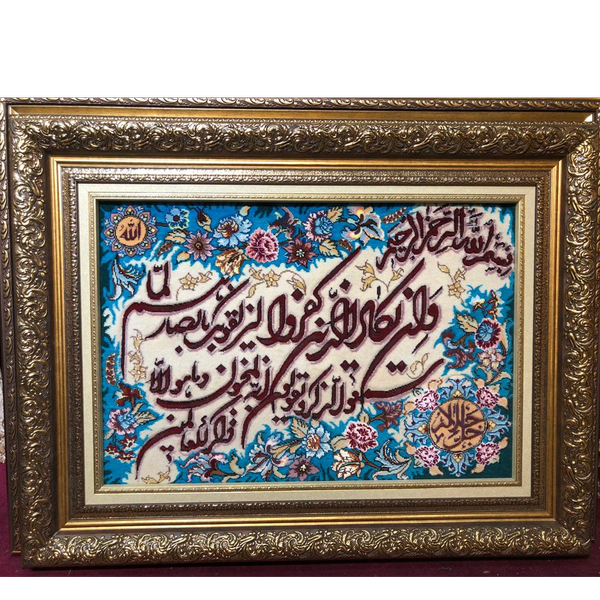 الله
بسم الله الرحمن الرحیم
وان یکاد الذین کفروا لیزلقونک بابصارهم لما
سمعوا الذکر ویقولون انه لمجنون وما هو الا
ذکر للعالمین
جل جلاله